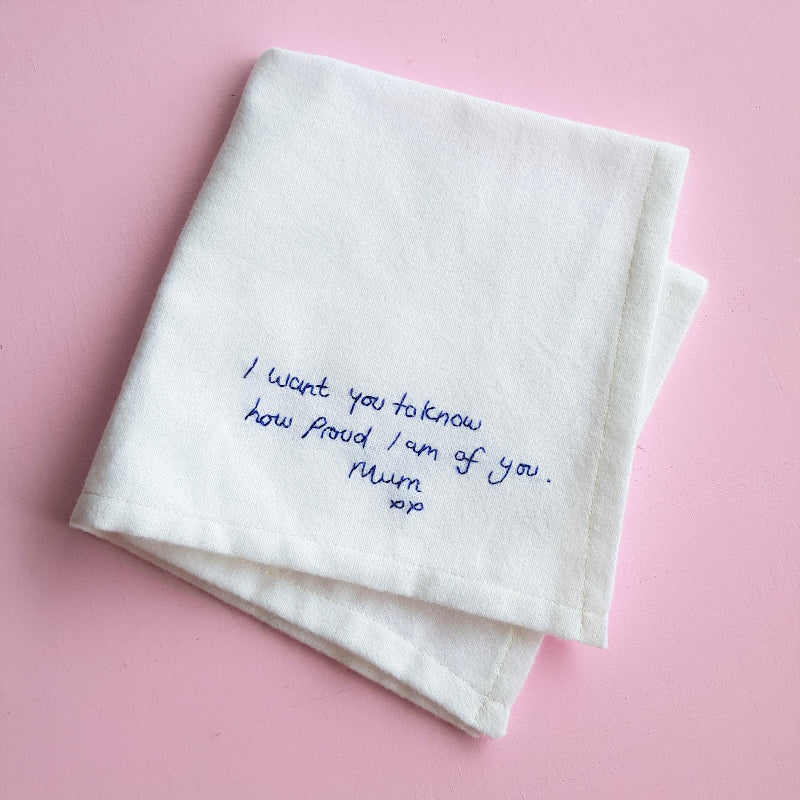 I want you to know
how Proud I am of you.
Mum
xx